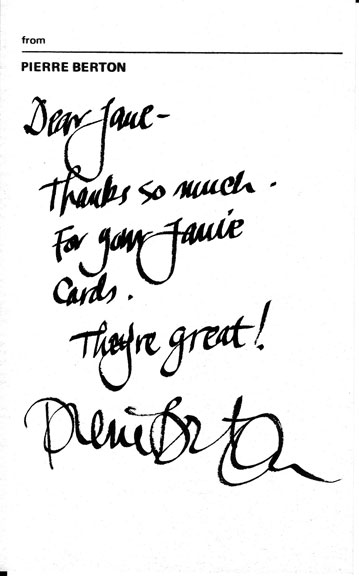 from
PIERRE BERTON
Dear Jane-
Thanks so much.
For your Janie
Cards.
They're great!
Pierre Berton